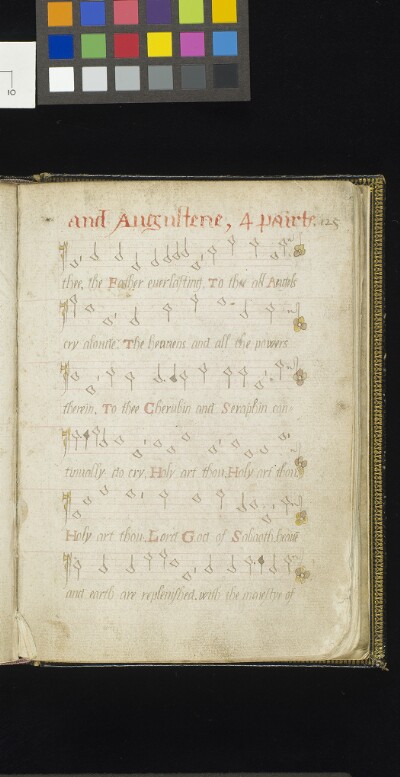 10
and Auggustene, 4 pairt. 125
thee, the Father everlasting. To thee all Angels
cry aloude. The heavens and all the powers
therein. To thee Cherubin and Seraphin con-
tinually do cry. Holy art thou. Holy art thou.
Holy art thou. Lord God of Sabaoth. heavē
and earth are replenished with the maiestye of